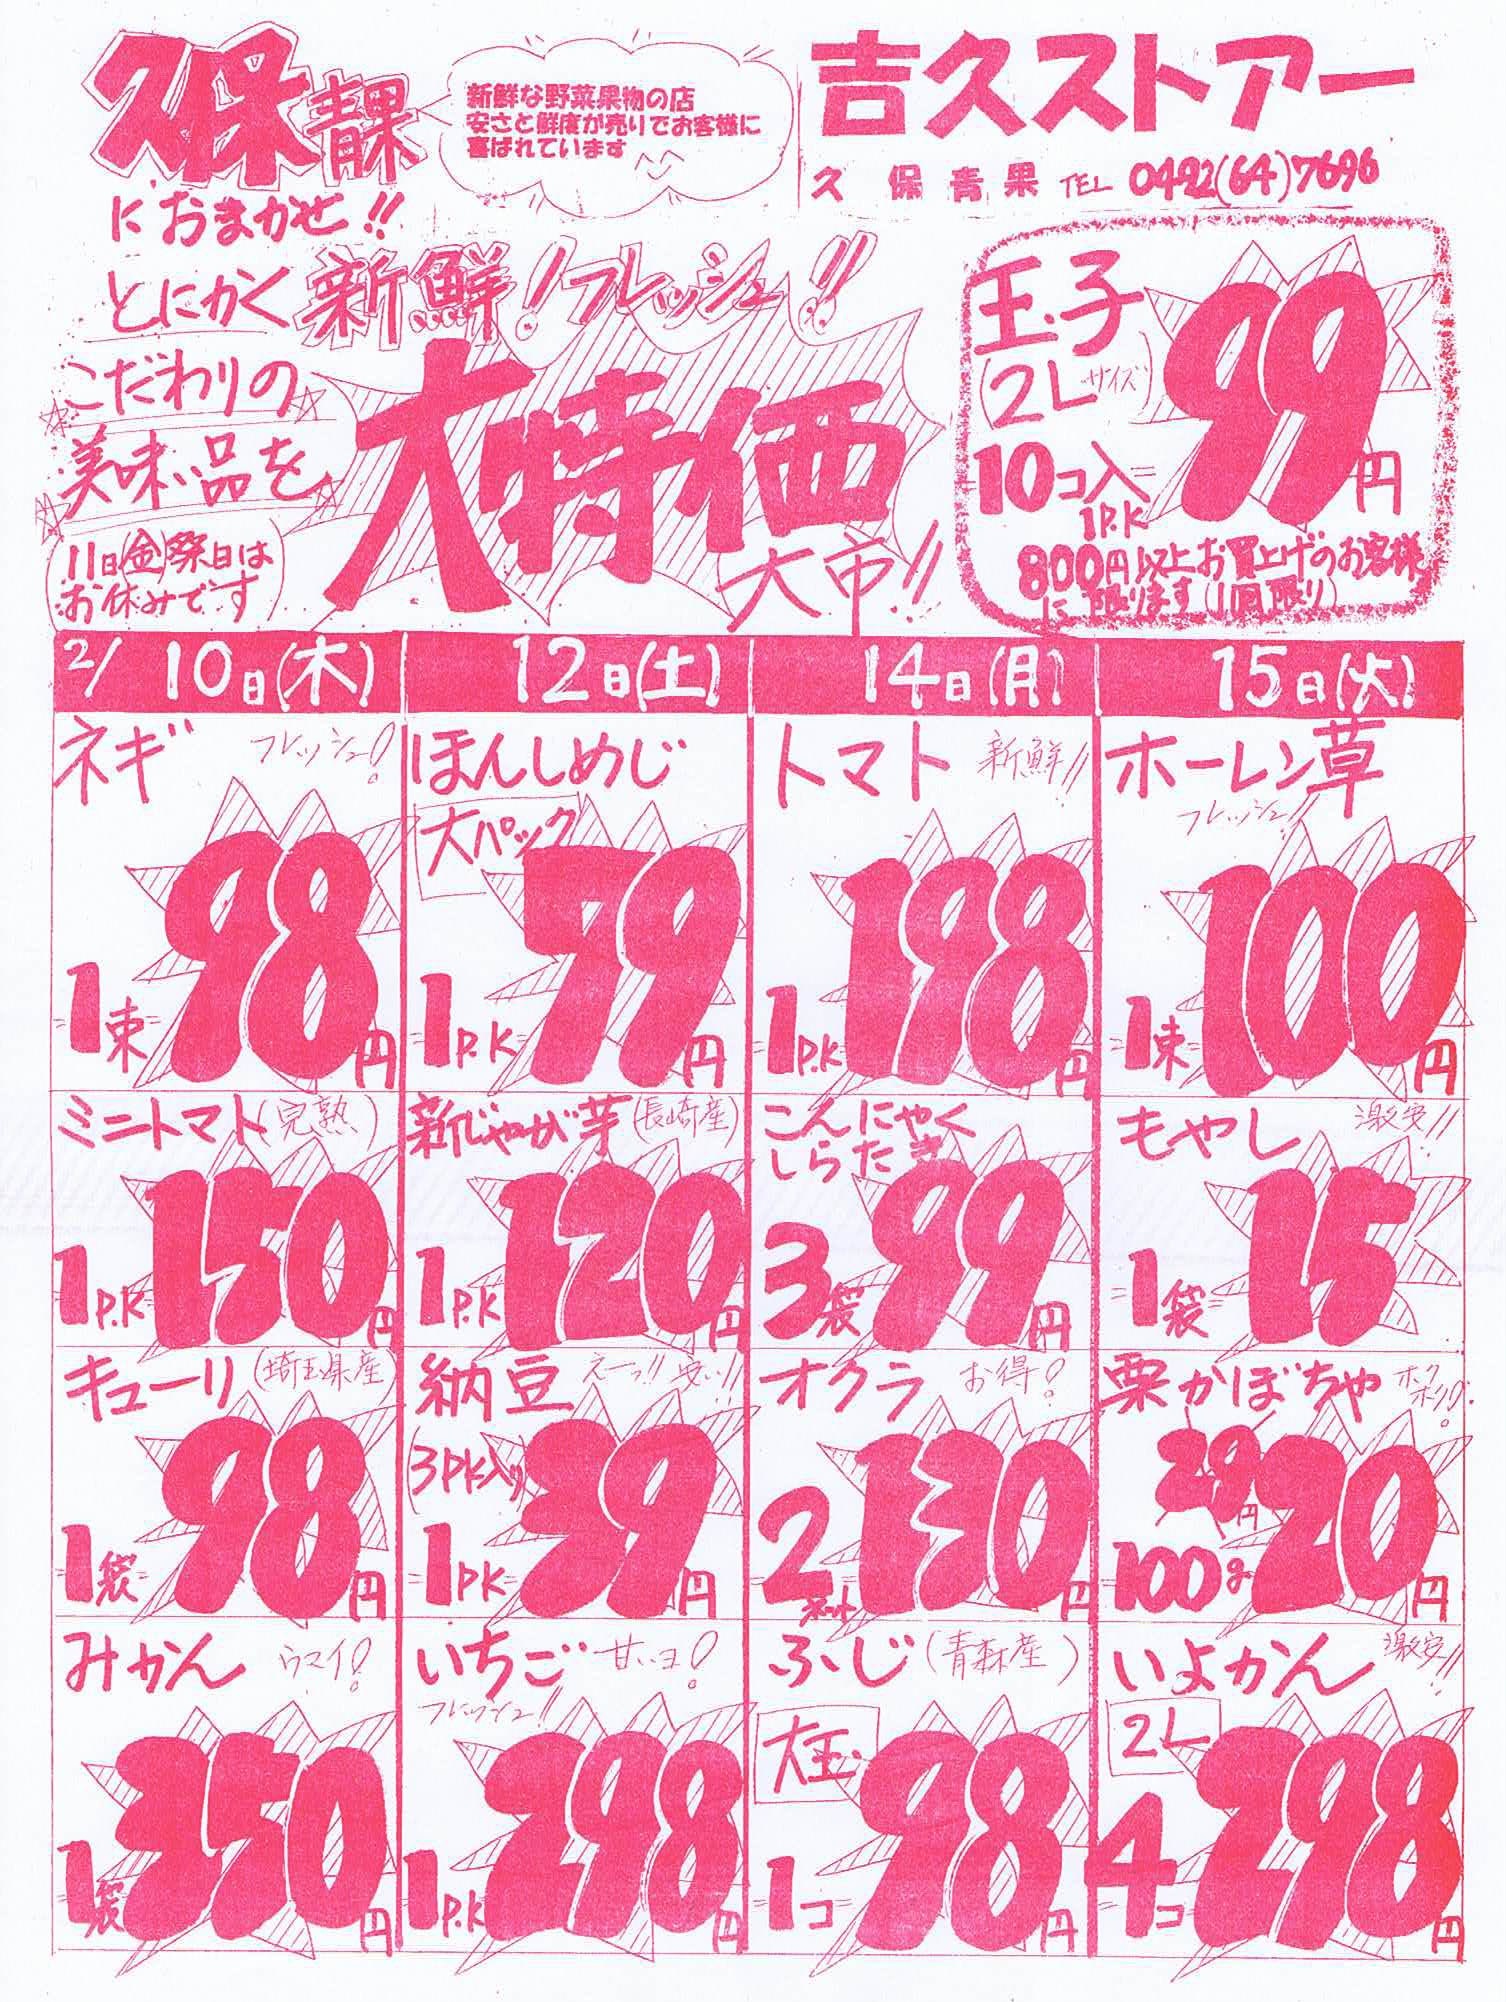 久保青果
におまかせ!!
新鮮な野菜果物の店
安さと鮮度が売りでお客様に
喜ばれています
吉久ストアー
久保青果 TEL 0492(64)7696
とにかく新鮮!フレッシュ!!
こだわりの
美味い品を
大特価
大市!!
11日(金)祭日は
お休みです
玉子
(2Lサイズ)
10コ入
1P.K
99円
800円以上お買上げのお客様
に限ります(1回限り)
2/10日(木) 12日(土) 14日(月) 15日(火)
ネギ フレッシュ!
1束 98円
ほんしめじ
大パック
1P.K 79円
トマト 新鮮!!
1P.K 198円
ホーレン草
フレッシュ!!
1束 100円
ミニトマト(完熟)
1P.K 150円
新じゃが芋(長崎産)
1P.K 120円
こんにゃく
しらたき
3袋 99円
もやし 激安!!
1袋 15
キューリ(埼玉県産)
1袋 98円
納豆 えーっ!!安い!!
(3PK入り)
1PK 39円
オクラ お得!
2ネット 130円
栗かぼちゃ ホクホク!
29円
100g 20円
みかん ウマイ!
1袋 350円
いちご 甘いヨ!
フレッシュ!!
1P.K 298円
ふじ(青森産)
大玉
1コ 98円
いよかん 激安!!
2L
4コ 298円